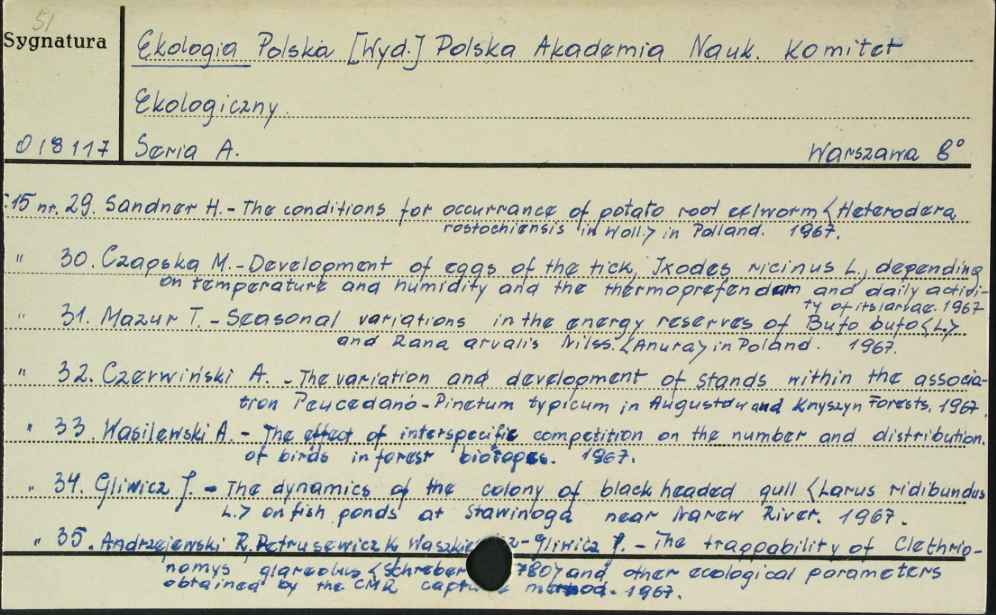 51
Sygnatura
Ekologia Polska [Wyd.] Polska Akademia Nauk. Komitet
Ekologiczny.
018117 Seria A. Warszawa 8°
:15 nr. 29. Sandner H. - The conditions for occurrance of potato root eelworm <Heterodera
rostochiensis in Woll.> in Polland. 1967.
" 30. Czapska M. - Development of eggs of the tick, Ixodes ricinus L., depending
on temperature and humidity and the thermopreferendum and daily activi-
ty of its larvae. 1967
" 31. Mazur T. - Seasonal variations in the energy reserves of Bufo bufo <L.>
and Rana arvalis Nilss. <Anura> in Poland. 1967.
" 32. Czerwiński A. - The variation and development of stands within the associa-
tion Peucedano-Pinetum typicum in Augustów and Knyszyn Forests. 1967.
" 33. Wasilewski A. - The effect of interspecific competition on the number and distribution.
of birds in forest biotopes. 1967.
" 34. Gliwicz J. - The dynamics of the colony of black headed gull <Larus ridibundus
L.> on fish ponds at Stawinoga near Narew River. 1967.
" 35. Andrzejewski R. Petrusewicz K. Gliwicz J. - The trappability of Clethrio-
nomys glareolus <Schreber 780> and other ecological parameters
obtained by the CMR method. 1967.